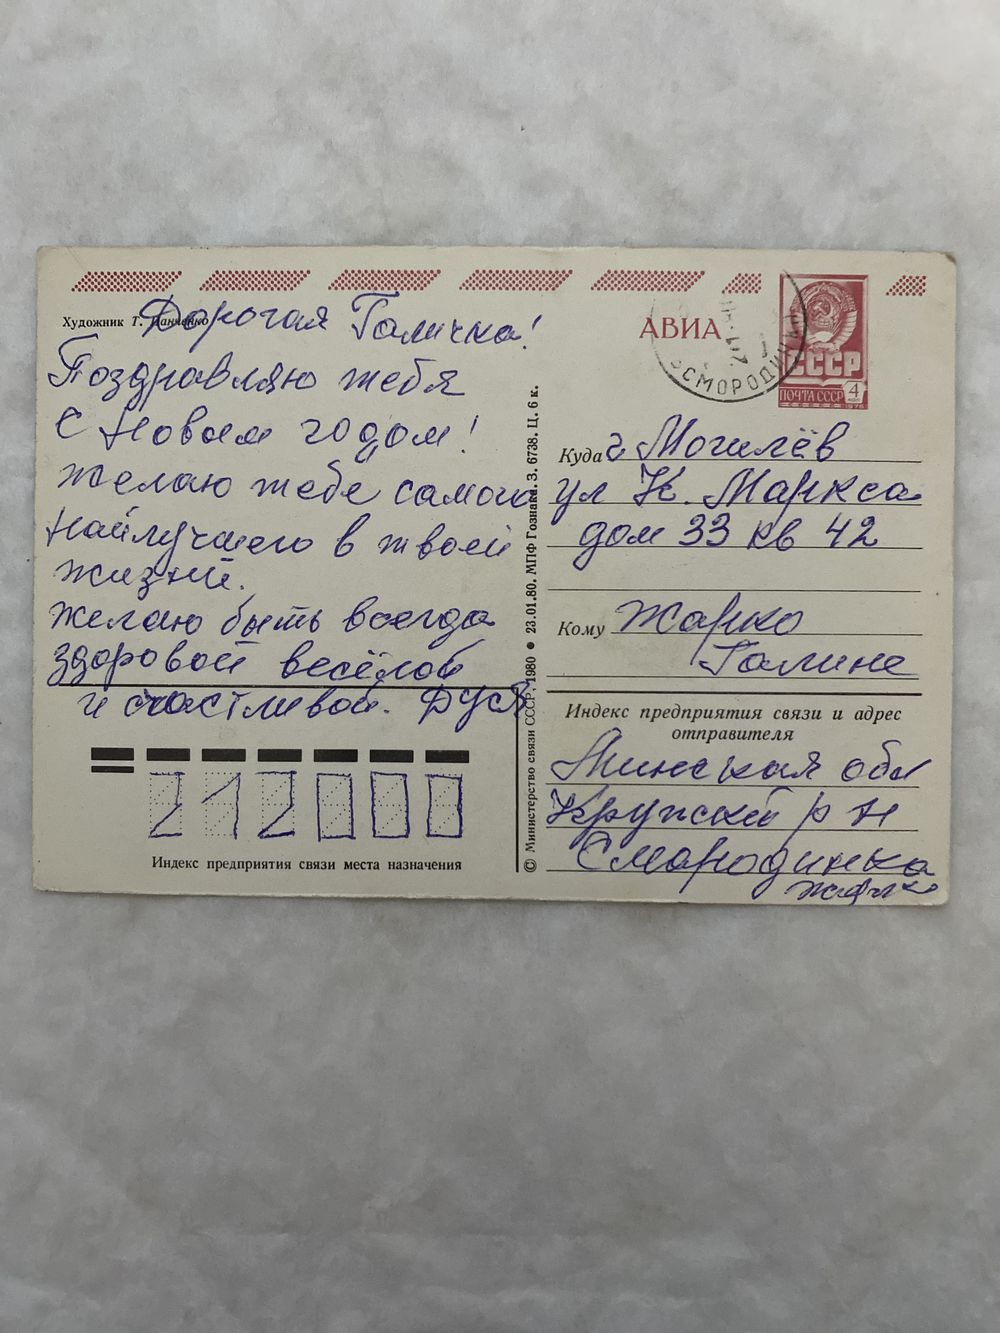 Художник Т. Панченко
Дорогая Галичка!
Поздравляю тебя
С Новым годом!
Желаю тебе самого
Найлучшего в твоей
жизни.
желаю быть всегда
здоровой весёлой
и счастливой. Дуся
Индекс предприятия связи места назначения
© Министерство связи СССР, 1980 ● 23.01.80. МПФ Гознака. З. 6738. Ц. 6 к.
АВИА
СМОРОДИНКА
СССР
ПОЧТА СССР 4 коп
1976
Куда г. Могилёв
ул К. Маркса
дом 33 кв 42
Кому Жарко
Галине
Индекс предприятия связи и адрес
отправителя
Минская обл
Крупский р н
Смародинка